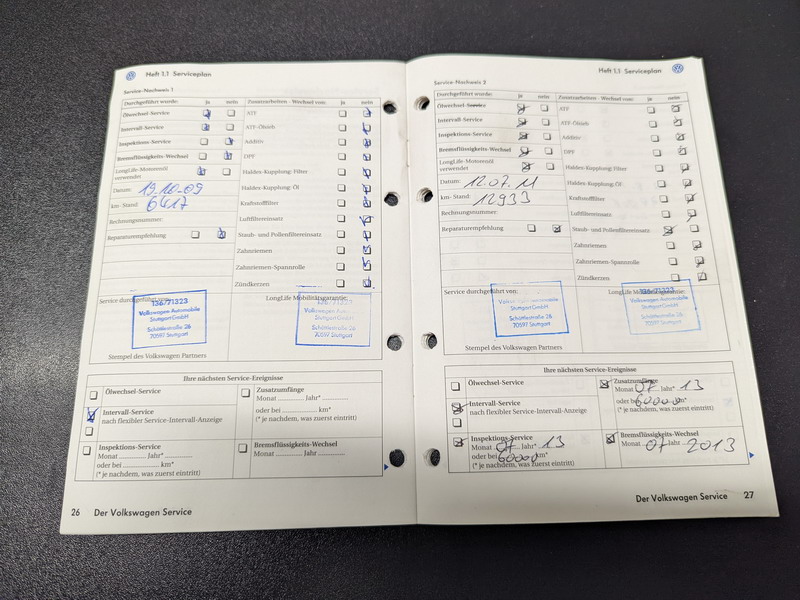 Heft 1.1 Serviceplan
Service-Nachweis 1
Durchgeführt wurde: ja nein
Zusatzarbeiten - Wechsel von: ja nein
Ölwechsel-Service
ATF
Intervall-Service
ATF-Ölsieb
Inspektions-Service
Additiv
Bremsflüssigkeits-Wechsel
DPF
LongLife-Motorenöl
verwendet
Haldex-Kupplung: Filter
Datum: 19.10.09
Haldex-Kupplung: Öl
km-Stand: 6417
Kraftstofffilter
Rechnungsnummer:
Luftfiltereinsatz
Reparaturempfehlung
Staub- und Pollenfiltereinsatz
Zahnriemen
Zahnriemen-Spannrolle
Zündkerzen
Service durchgeführt von:
LongLife Mobilitätsgarantie:
136/71323
Volkswagen Automobile
Stuttgart GmbH
Schüttlestraße 26
70597 Stuttgart
Volkswagen Automobile
Stuttgart GmbH
70597 Stuttgart
Stempel des Volkswagen Partners
Ihre nächsten Service-Ereignisse
Ölwechsel-Service
Zusatzumfänge
Monat ........ Jahr* ........
Intervall-Service
nach flexibler Service-Intervall-Anzeige
oder bei ........ km*
(* je nachdem, was zuerst eintritt)
Inspektions-Service
Monat ........ Jahr* ........
oder bei ........ km*
(* je nachdem, was zuerst eintritt)
Bremsflüssigkeits-Wechsel
Monat ........ Jahr ........
26 Der Volkswagen Service
Heft 1.1 Serviceplan
Service-Nachweis 2
Durchgeführt wurde: ja nein
Zusatzarbeiten - Wechsel von: ja nein
Ölwechsel-Service
ATF
Intervall-Service
ATF-Ölsieb
Inspektions-Service
Additiv
Bremsflüssigkeits-Wechsel
DPF
LongLife-Motorenöl
verwendet
Haldex-Kupplung: Filter
Datum: 12.07.11
Haldex-Kupplung: Öl
km-Stand: 12933
Kraftstofffilter
Rechnungsnummer:
Luftfiltereinsatz
Reparaturempfehlung
Staub- und Pollenfiltereinsatz
Zahnriemen
Zahnriemen-Spannrolle
Zündkerzen
Service durchgeführt von:
LongLife Mobilitätsgarantie:
Stuttgart GmbH
70597 Stuttgart
136/71323
Volkswagen Automobile
Stuttgart GmbH
70597 Stuttgart
Stempel des Volkswagen Partners
Ihre nächsten Service-Ereignisse
Ölwechsel-Service
Zusatzumfänge
Monat 07 Jahr* 13
Intervall-Service
nach flexibler Service-Intervall-Anzeige
oder bei 60000 km*
(* je nachdem, was zuerst eintritt)
Inspektions-Service
Monat 07 Jahr* 13
oder bei 60000 km*
(* je nachdem, was zuerst eintritt)
Bremsflüssigkeits-Wechsel
Monat 07 Jahr 2013
Der Volkswagen Service 27